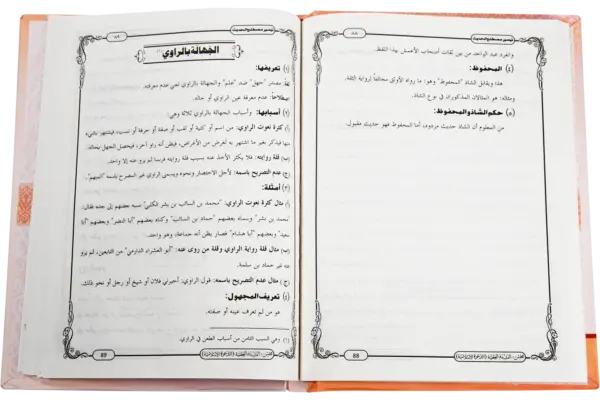 تيسير مصطلح الحديث
٨٨
وانفرد عبد الواحد من بين ثقات أصحاب الأعمش بهذا اللفظ.
(٤) المحفوظ:
هذا ويقابل الشاذ "المحفوظ" وهو: ما رواه الأوثق مخالفاً لرواية الثقة.
ومثاله: هو المثالان المذكوران في نوع الشاذ.
(٥) حكم الشاذ والمحفوظ:
من المعلوم أن الشاذ حديث مردود، أما المحفوظ فهو حديث مقبول.
88
تيسير مصطلح الحديث
٨٩
الجهالة بالراوي
(١) تعريفها:
لغة: مصدر "جهل" ضد "علم" والجهالة بالراوي تعني عدم معرفته.
اصطلاحاً: عدم معرفة عين الراوي أو حاله.
(٢) أسبابها: وأسباب الجهالة بالراوي ثلاثة وهي:
(أ) كثرة نعوت الراوي: من اسم أو كنية أو لقب أو صفة أو حرفة أو نسب، فيشتهر بشيء
منها فيذكر بغير ما اشتهر به لغرض من الأغراض، فيظن أنه راو آخر، فيحصل الجهل بحاله.
(ب) قلة روايته: فلا يكثر الأخذ عنه بسبب قلة روايته فربما لم يرو عنه إلا واحد.
(ج) عدم التصريح باسمه: لأجل الاختصار ونحوه ويسمى الراوي غير المصرح باسمه "المبهم".
(٣) أمثلة:
(أ) مثال كثرة نعوت الراوي: "محمد بن السائب بن بشر الكلبي" نسبه بعضهم إلى جده فقال:
"محمد بن بشر" وسماه بعضهم "حماد بن السائب" وكناه بعضهم "أبا النضر" وبعضهم "أبا
سعيد" وبعضهم "أبا هشام" فصار يظن أنه جماعة، وهو واحد.
(ب) مثال قلة رواية الراوي وقلة من روى عنه: "أبو العشراء الدارمي" من التابعين، لم يرو
عنه غير حماد بن سلمة.
(ج) مثال عدم التصريح باسمه: قول الراوي: أخبرني فلان أو شيخ أو رجل أو نحو ذلك.
(٤) تعريف المجهول:
هو من لم تعرف عينه أو صفته.
(١) وهي السبب الثامن من أسباب الطعن في الراوي.
89